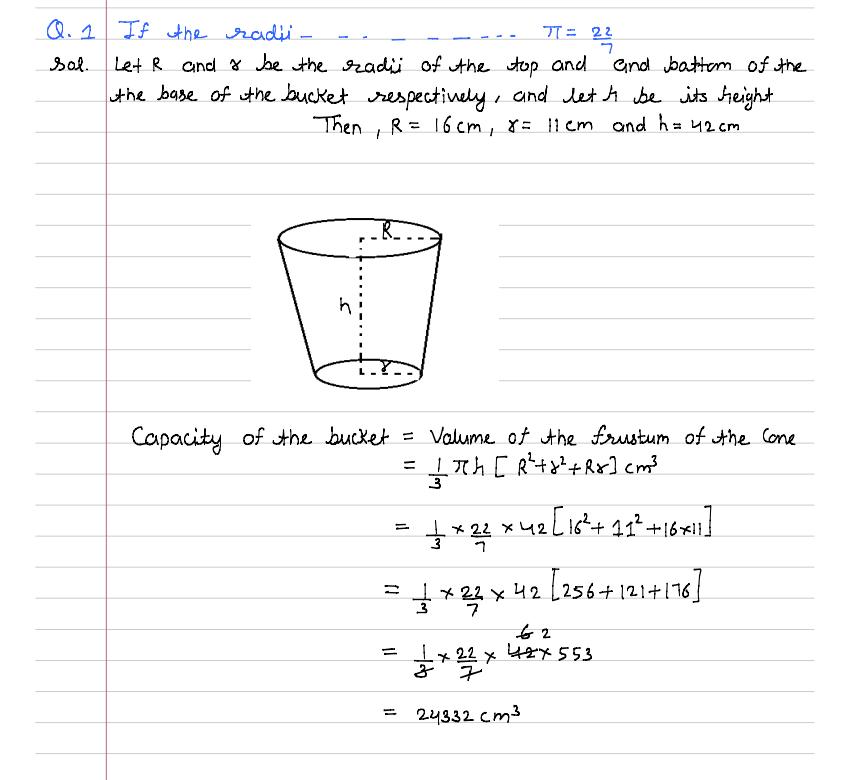 Q. 1 If the radii - - - - - - - - - - π = 22/7
Sol. Let R and r be the radii of the top and and bottom of the
the base of the bucket respectively, and let h be its height
Then, R = 16 cm, r = 11 cm and h = 42 cm
R
h
r
Capacity of the bucket = Volume of the frustum of the Cone
= 1/3 πh [R²+r²+Rr] cm³
= 1/3 × 22/7 × 42 [16² + 11² + 16×11]
= 1/3 × 22/7 × 42 [256 + 121 + 176]
6 2
= 1/3 × 22/7 × 42 × 553
= 24332 cm³